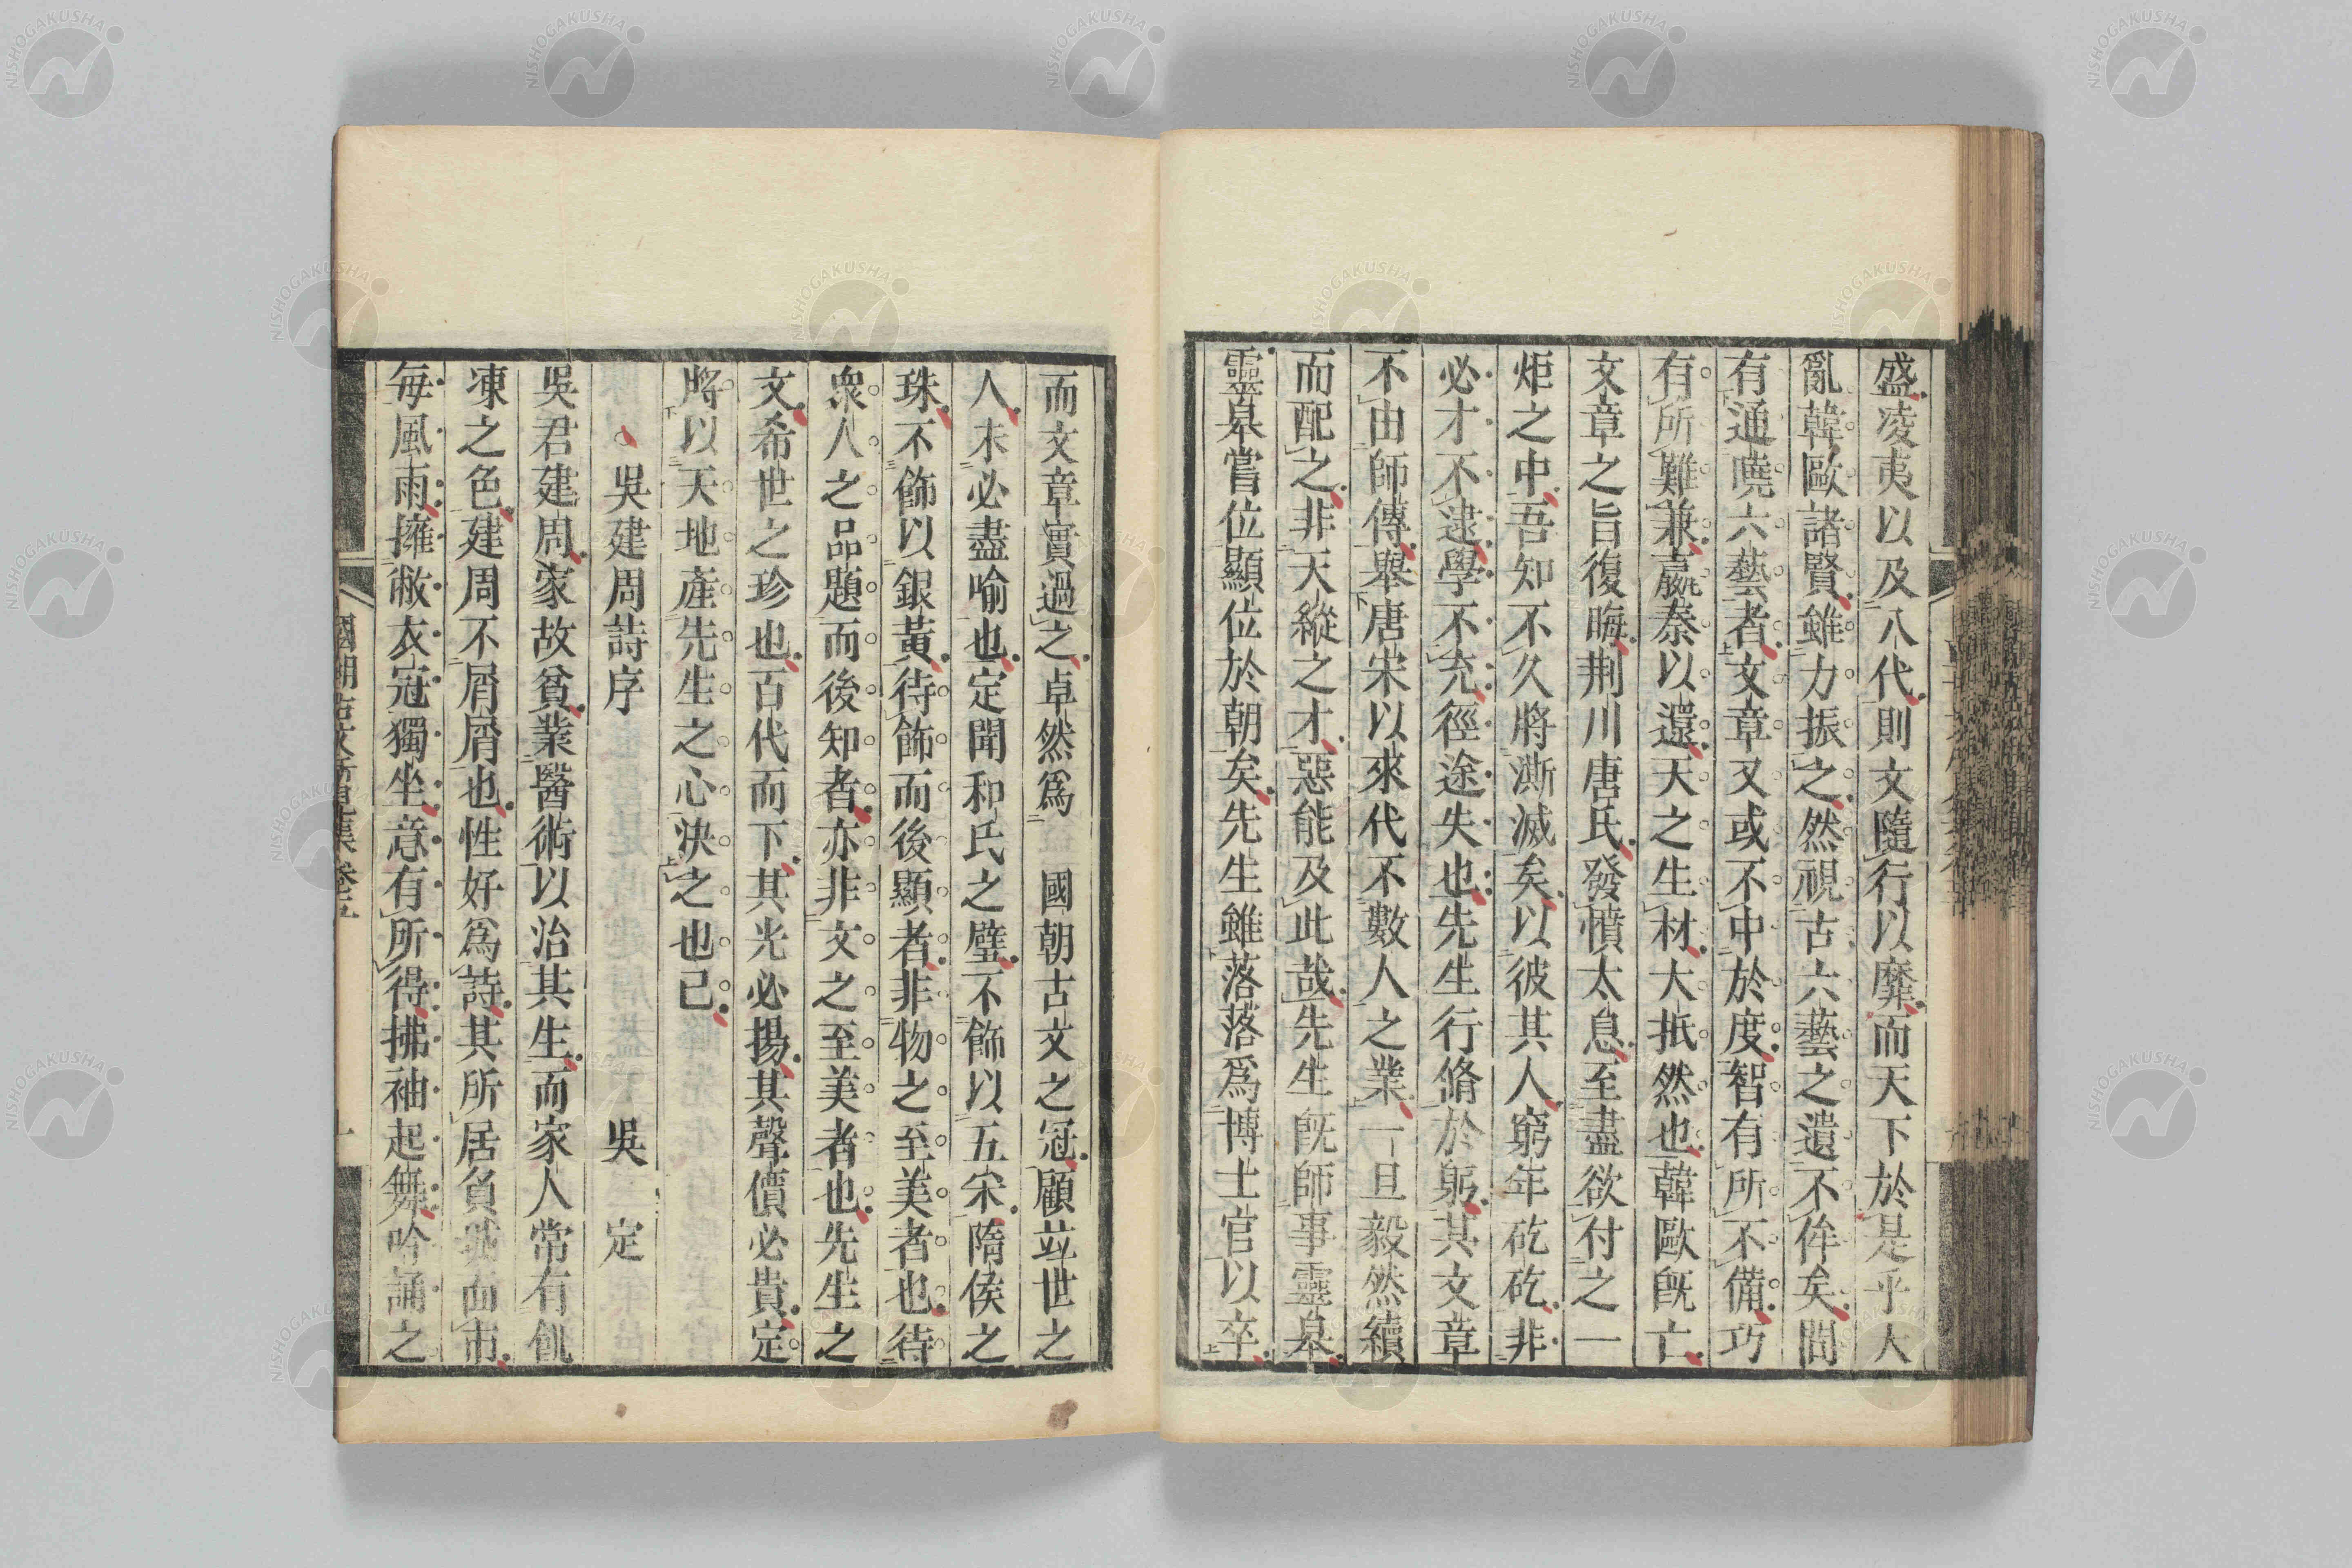 盛凌夷以及八代則文隨行以靡而天下於是乎大
亂韓歐諸賢雖力振之然視古六藝之遺不侔矣間
有通曉六藝者文章又或不中於度智有所不備巧
有所難兼嬴秦以還天之生材大抵然也韓歐既亡
文章之旨復晦荆川唐氏發憤太息至盡欲付之一
炬之中吾知不久將澌滅矣以彼其人窮年矻矻非
必才不逮學不充徑途失也先生行脩於躬其文章
不由師傳舉唐宋以來代不數人之業一旦毅然續
而配之非天縱之才惡能及此哉先生既師事靈皋
靈皋嘗位顯位於朝矣先生雖落落爲博士官以卒
而文章實過之卓然爲 國朝古文之冠顧竝世之
人未必盡喻也定聞和氏之璧不飾以五宋隋侯之
珠不飾以銀黃待飾而後顯者非物之至美者也待
衆人之品題而後知者亦非文之至美者也先生之
文希世之珍也百代而下其光必揚其聲價必貴定
將以天地產先生之心決之也已
吳建周詩序 吳定
吳君建周家故貧業醫術以治其生而家人常有飢
凍之色建周不屑屑也性好爲詩其所居負城面市
每風雨擁敝衣冠獨坐意有所得拂袖起舞吟誦之
國朝古文所見集 卷五